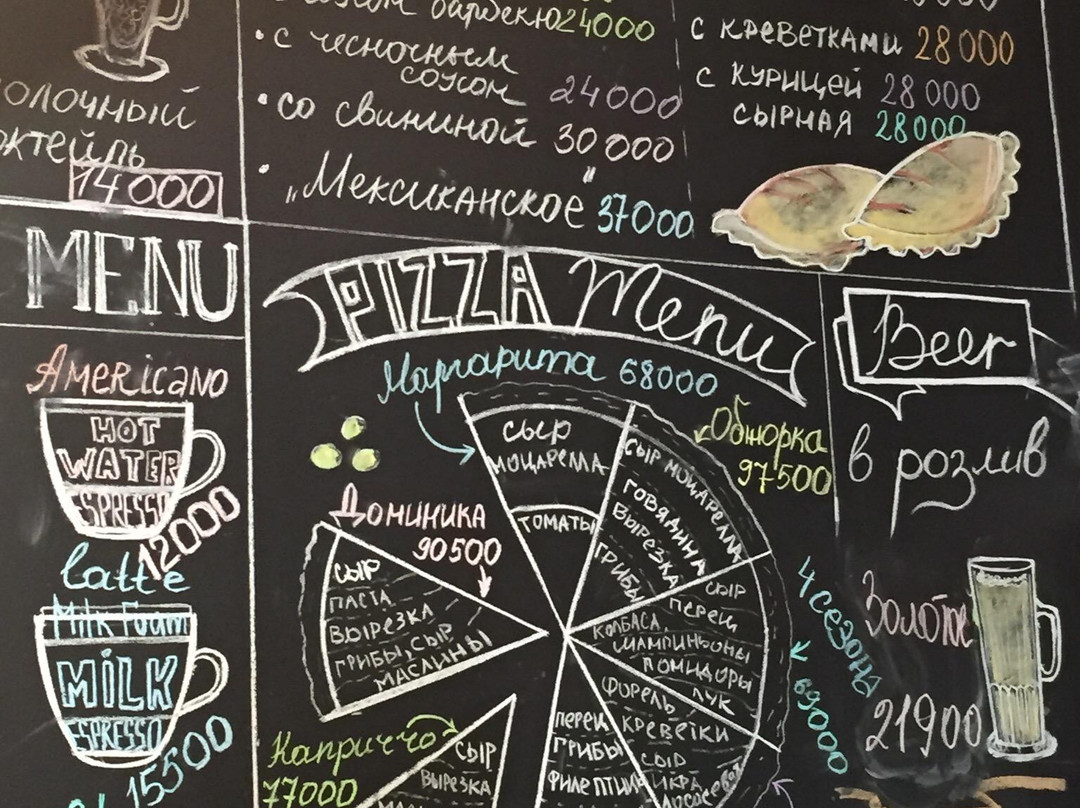 барбекю 24000
• с чесночным
соусом 24000
• со свининой 30000
• "Мексиканское" 37000
с креветками 28000
с курицей 28000
сырная 28000
14000
MENU
Americano
HOT
WATER
ESPRESSO
12000
latte
Milk Foam
MiLK
ESPRESSO
15500
PIZZA Menu
Маргарита 68000
сыр
моцарелла
томаты
Обжорка
97500
сыр моцарелла
говядина
вырезка
грибы
Доминика
90500
сыр
паста
вырезка
грибы, сыр
маслины
4 сезона
69000
сыр
перец
колбаса
шампиньоны
помидоры
лук
форель
креветки
сыр
икра
лососевая
перец
грибы
филе птицы
Каприччо
77000
сыр
вырезка
Beer
в розлив
Золотое
21900